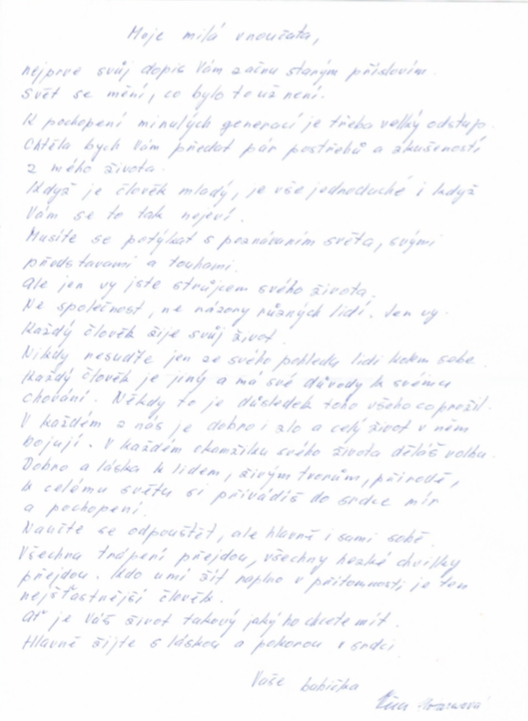 Moje milá vnoučata,
nejprve svůj dopis Vám začnu starým příslovím.
Svět se mění, co bylo to už není.
K pochopení minulých generací je třeba velký odstup.
Chtěla bych Vám předat pár postřehů a zkušeností
z mého života.
Když je člověk mladý, je vše jednoduché i když
Vám se to tak nejeví.
Musíte se potýkat s poznáváním světa, svými
představami a touhami.
Ale jen vy jste strůjcem svého života.
Ne společnost, ne názory různých lidí. Jen vy.
Každý člověk žije svůj život.
Nikdy nesuďte jen ze svého pohledu lidi kolem sebe.
Každý člověk je jiný a má své důvody k svému
chování. Někdy to je důsledek toho všeho co prožil.
V každém z nás je dobro i zlo a celý život v něm
bojují. V každém okamžiku svého života děláš volbu.
Dobro a láska k lidem, živým tvorům, přírodě,
k celému světu si přivádíš do srdce mír
a pochopení.
Naučte se odpouštět, ale hlavně i sami sobě.
Všechna trápení přejdou, všechny hezké chvilky
přejdou. Kdo umí žít naplno v přítomnosti, je ten
nejšťastnější člověk.
Ať je Váš život takový jaký ho chcete mít.
Hlavně žijte s láskou a pokorou v srdci.
Vaše babička